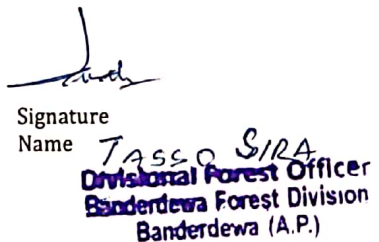 Signature
Name TASSO SIRA
Divisional Forest Officer
Banderdewa Forest Division
Banderdewa (A.P.)